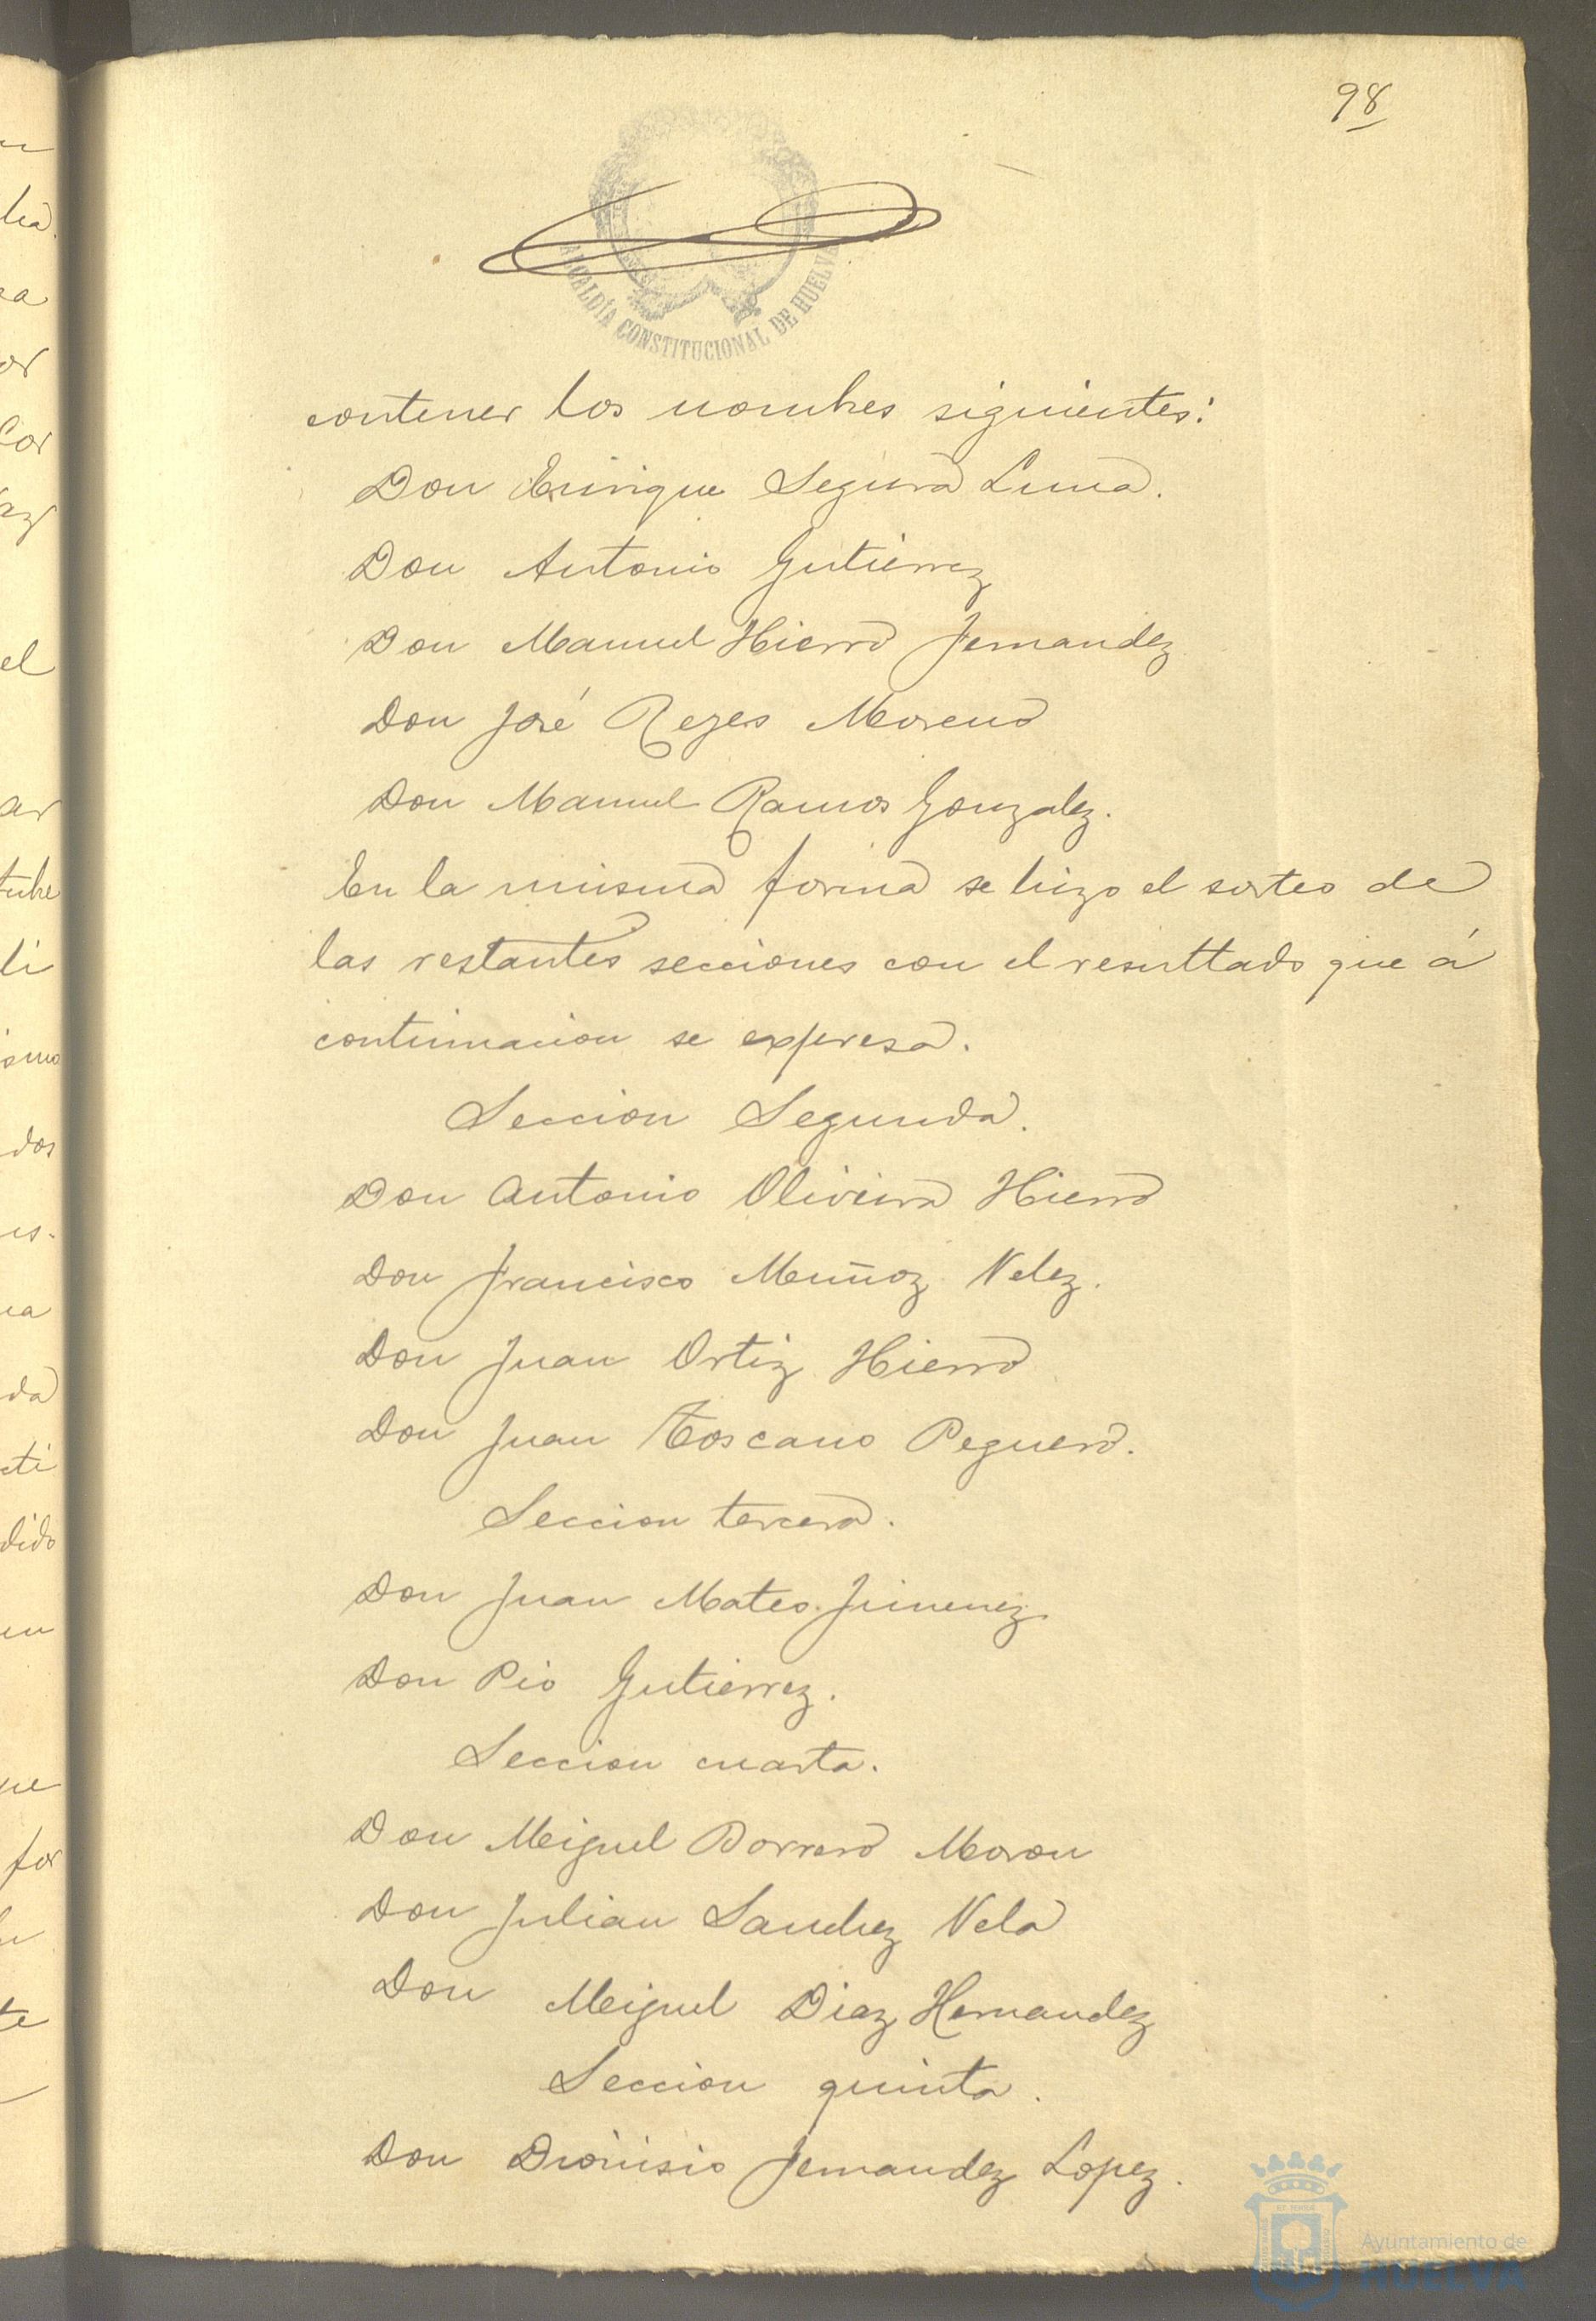 98
ALCALDÍA CONSTITUCIONAL DE HUELVA
contener los nombres siguientes:
Don Enrique Segura Luna.
Don Antonio Gutiérrez
Don Manuel Hierro Fernandez
Don José Reyes Moreno
Don Manuel Ramos Gonzalez.
En la misma forma se hizo el sorteo de
las restantes secciones con el resultado que á
continuacion se expresa.
Seccion Segunda.
Don Antonio Oliveira Hierro
Don Francisco Muñoz Velez.
Don Juan Ortiz Hierro
Don Juan Toscano Peguero.
Seccion tercera.
Don Juan Mateo Jimenez
Don Pio Gutierrez.
Seccion cuarta.
Don Miguel Borrero Moron
Don Julian Sanchez Vela
Don Miguel Diaz Hernandez
Seccion quinta.
Don Dionisio Fernandez Lopez.
Ayuntamiento de
HUELVA